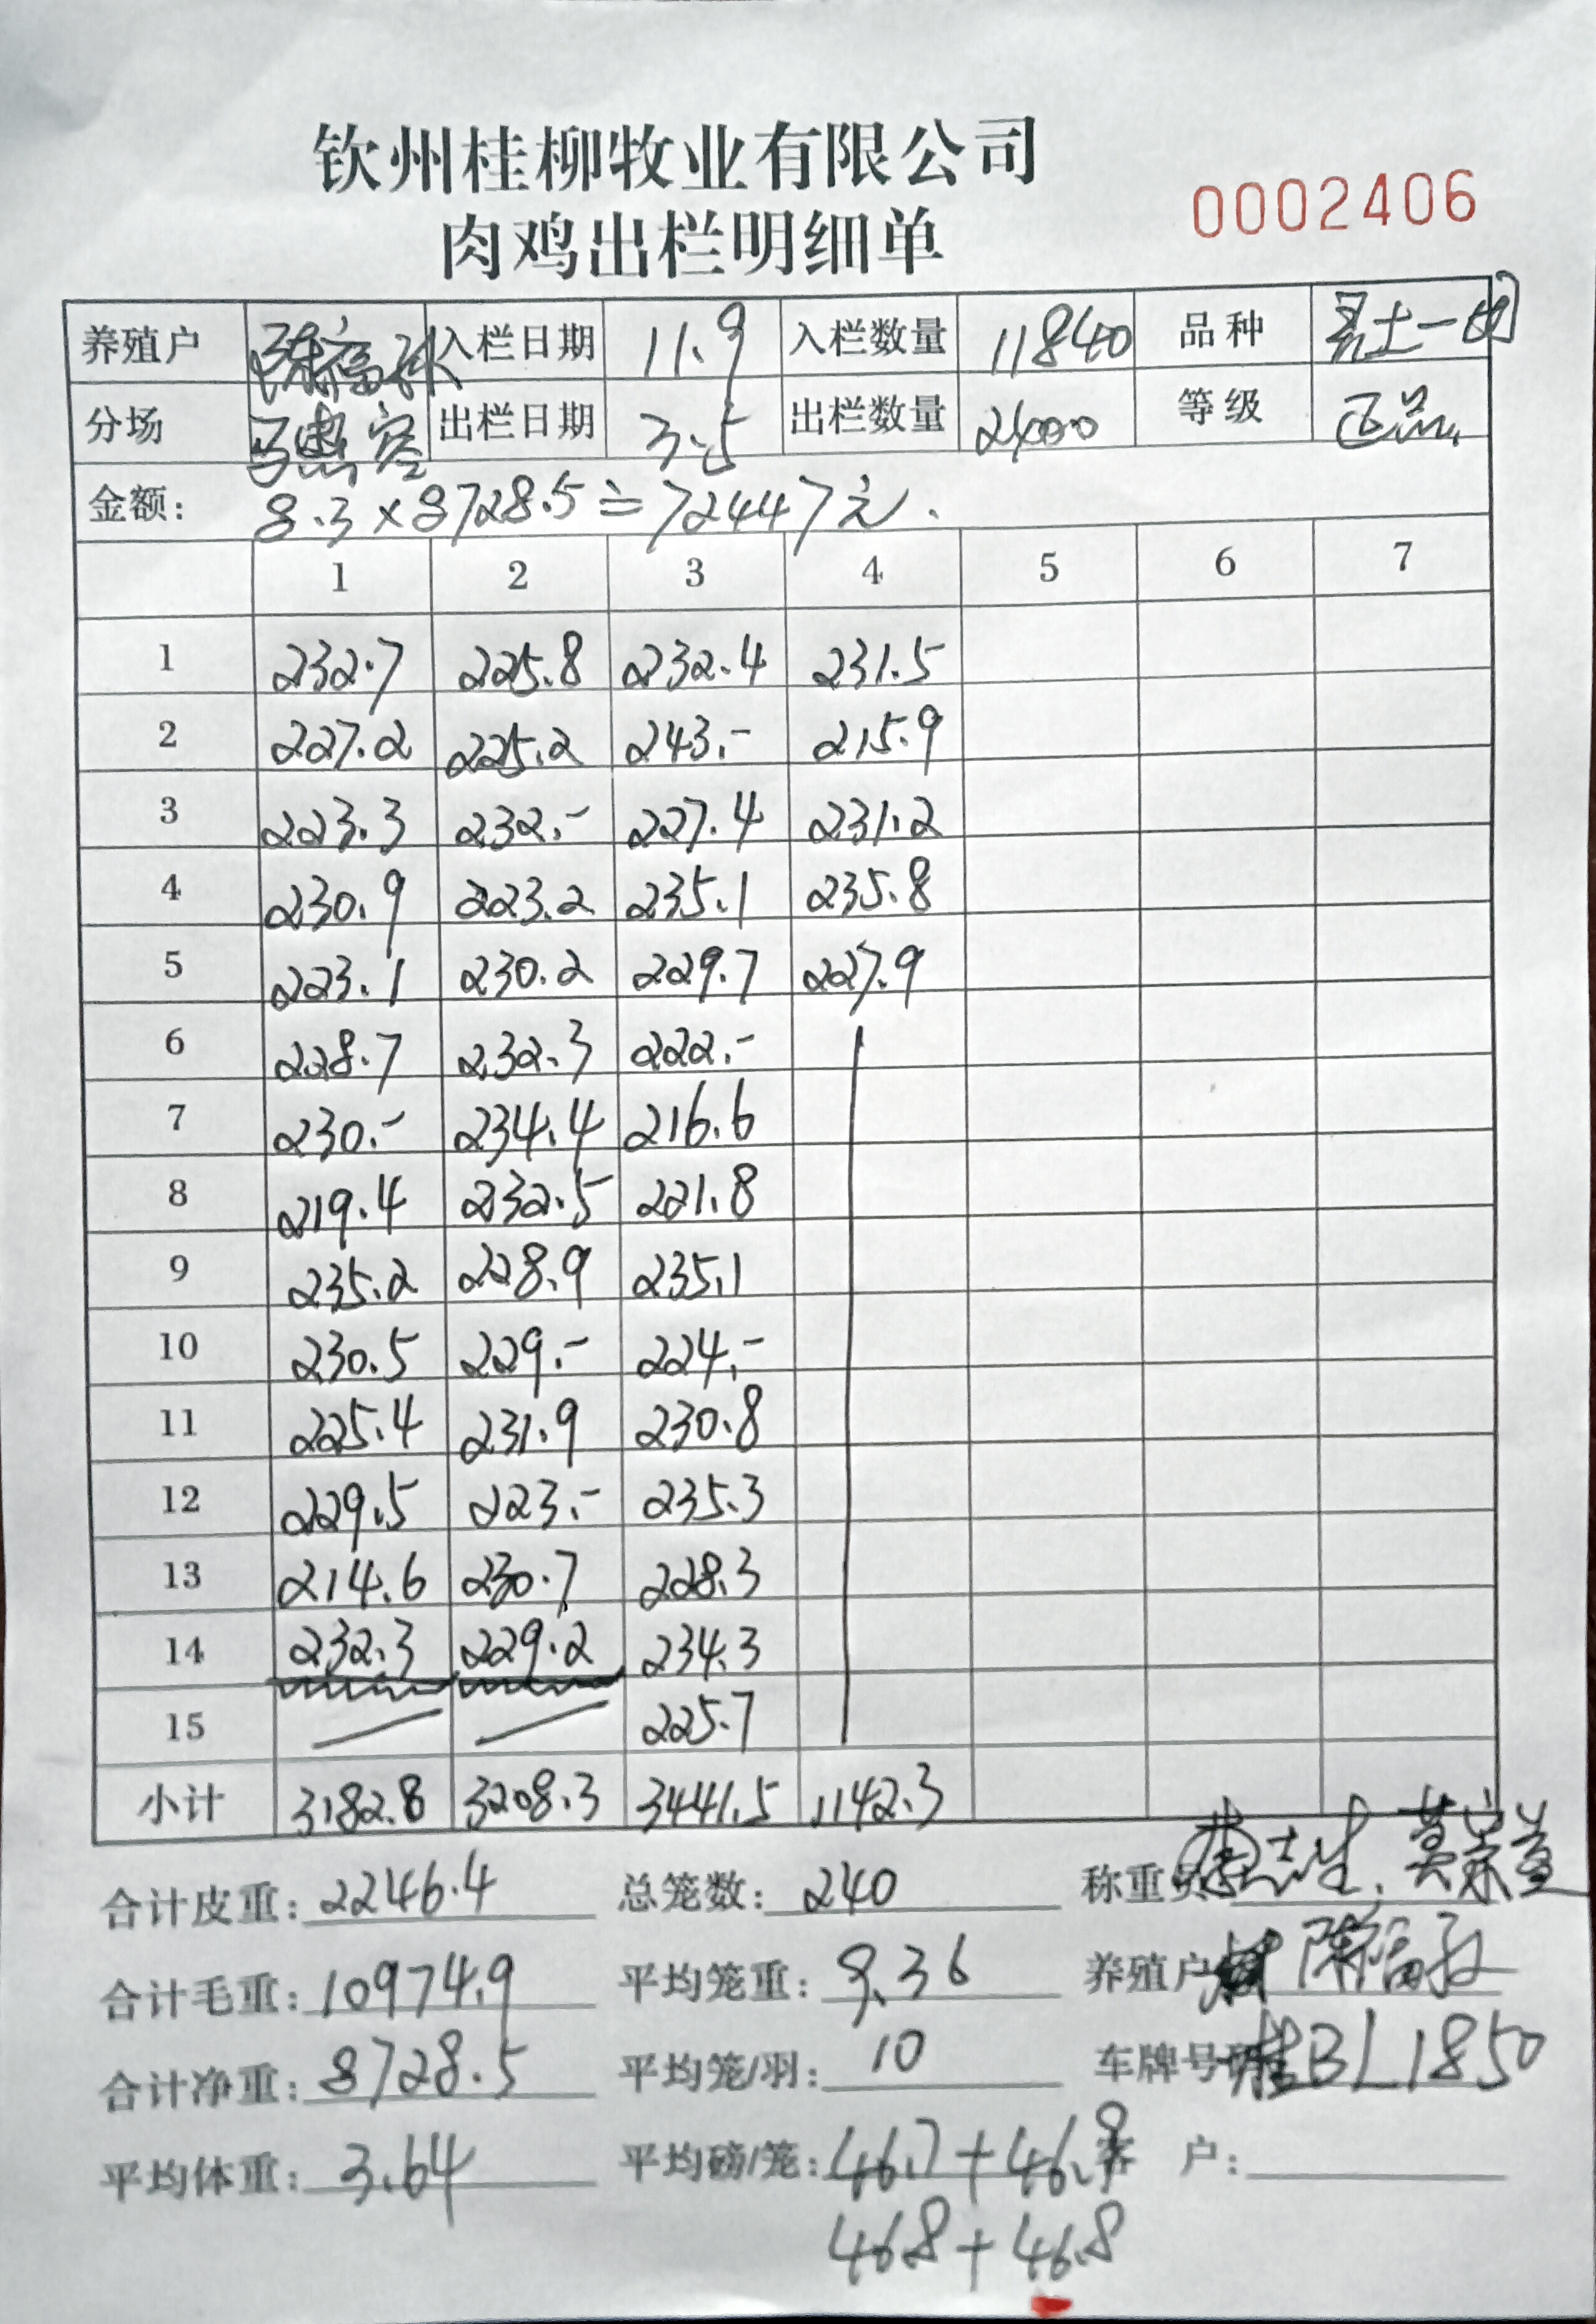 钦州桂柳牧业有限公司
肉鸡出栏明细单
0002406
养殖户 陈福 入栏日期 11.9 入栏数量 11840 品种 土一
分场 出栏日期 3.5 出栏数量 2400 等级 正品
金额: 8.3×8728.5=72447元.
1 2 3 4 5 6 7
1 232.7 225.8 232.4 231.5
2 227.2 225.2 243.- 215.9
3 223.3 232.- 227.4 231.2
4 230.9 223.2 235.1 235.8
5 223.1 230.2 229.7 227.9
6 228.7 232.3 222.-
7 230.- 234.4 216.6
8 219.4 232.5 221.8
9 235.2 228.9 235.1
10 230.5 229.- 224.-
11 225.4 231.9 230.8
12 229.5 223.- 235.3
13 214.6 230.7 228.3
14 232.3 229.2 234.3
15 225.7
小计 3182.8 3208.3 3441.5 1142.3
合计皮重: 2246.4 总笼数: 240 称重员
合计毛重: 10974.9 平均笼重: 9.36 养殖户 陈福
合计净重: 8728.5 平均笼/羽: 10 车牌号码 桂BL1850
平均体重: 3.64 平均磅/笼: 46.7+46.9 客 户:
46.8+46.8